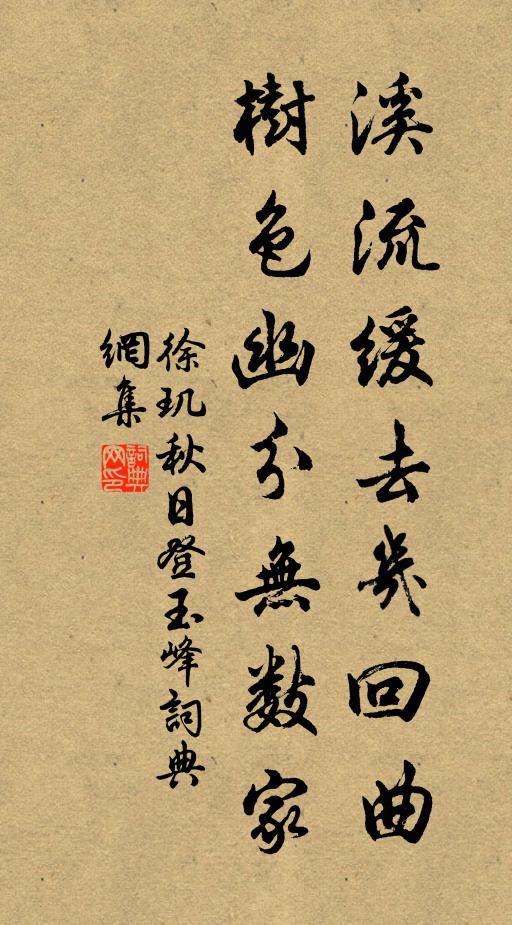 溪流緩去幾回曲
樹色幽分無數家
徐玑秋日登玉峰詞典
網集
詞典網印